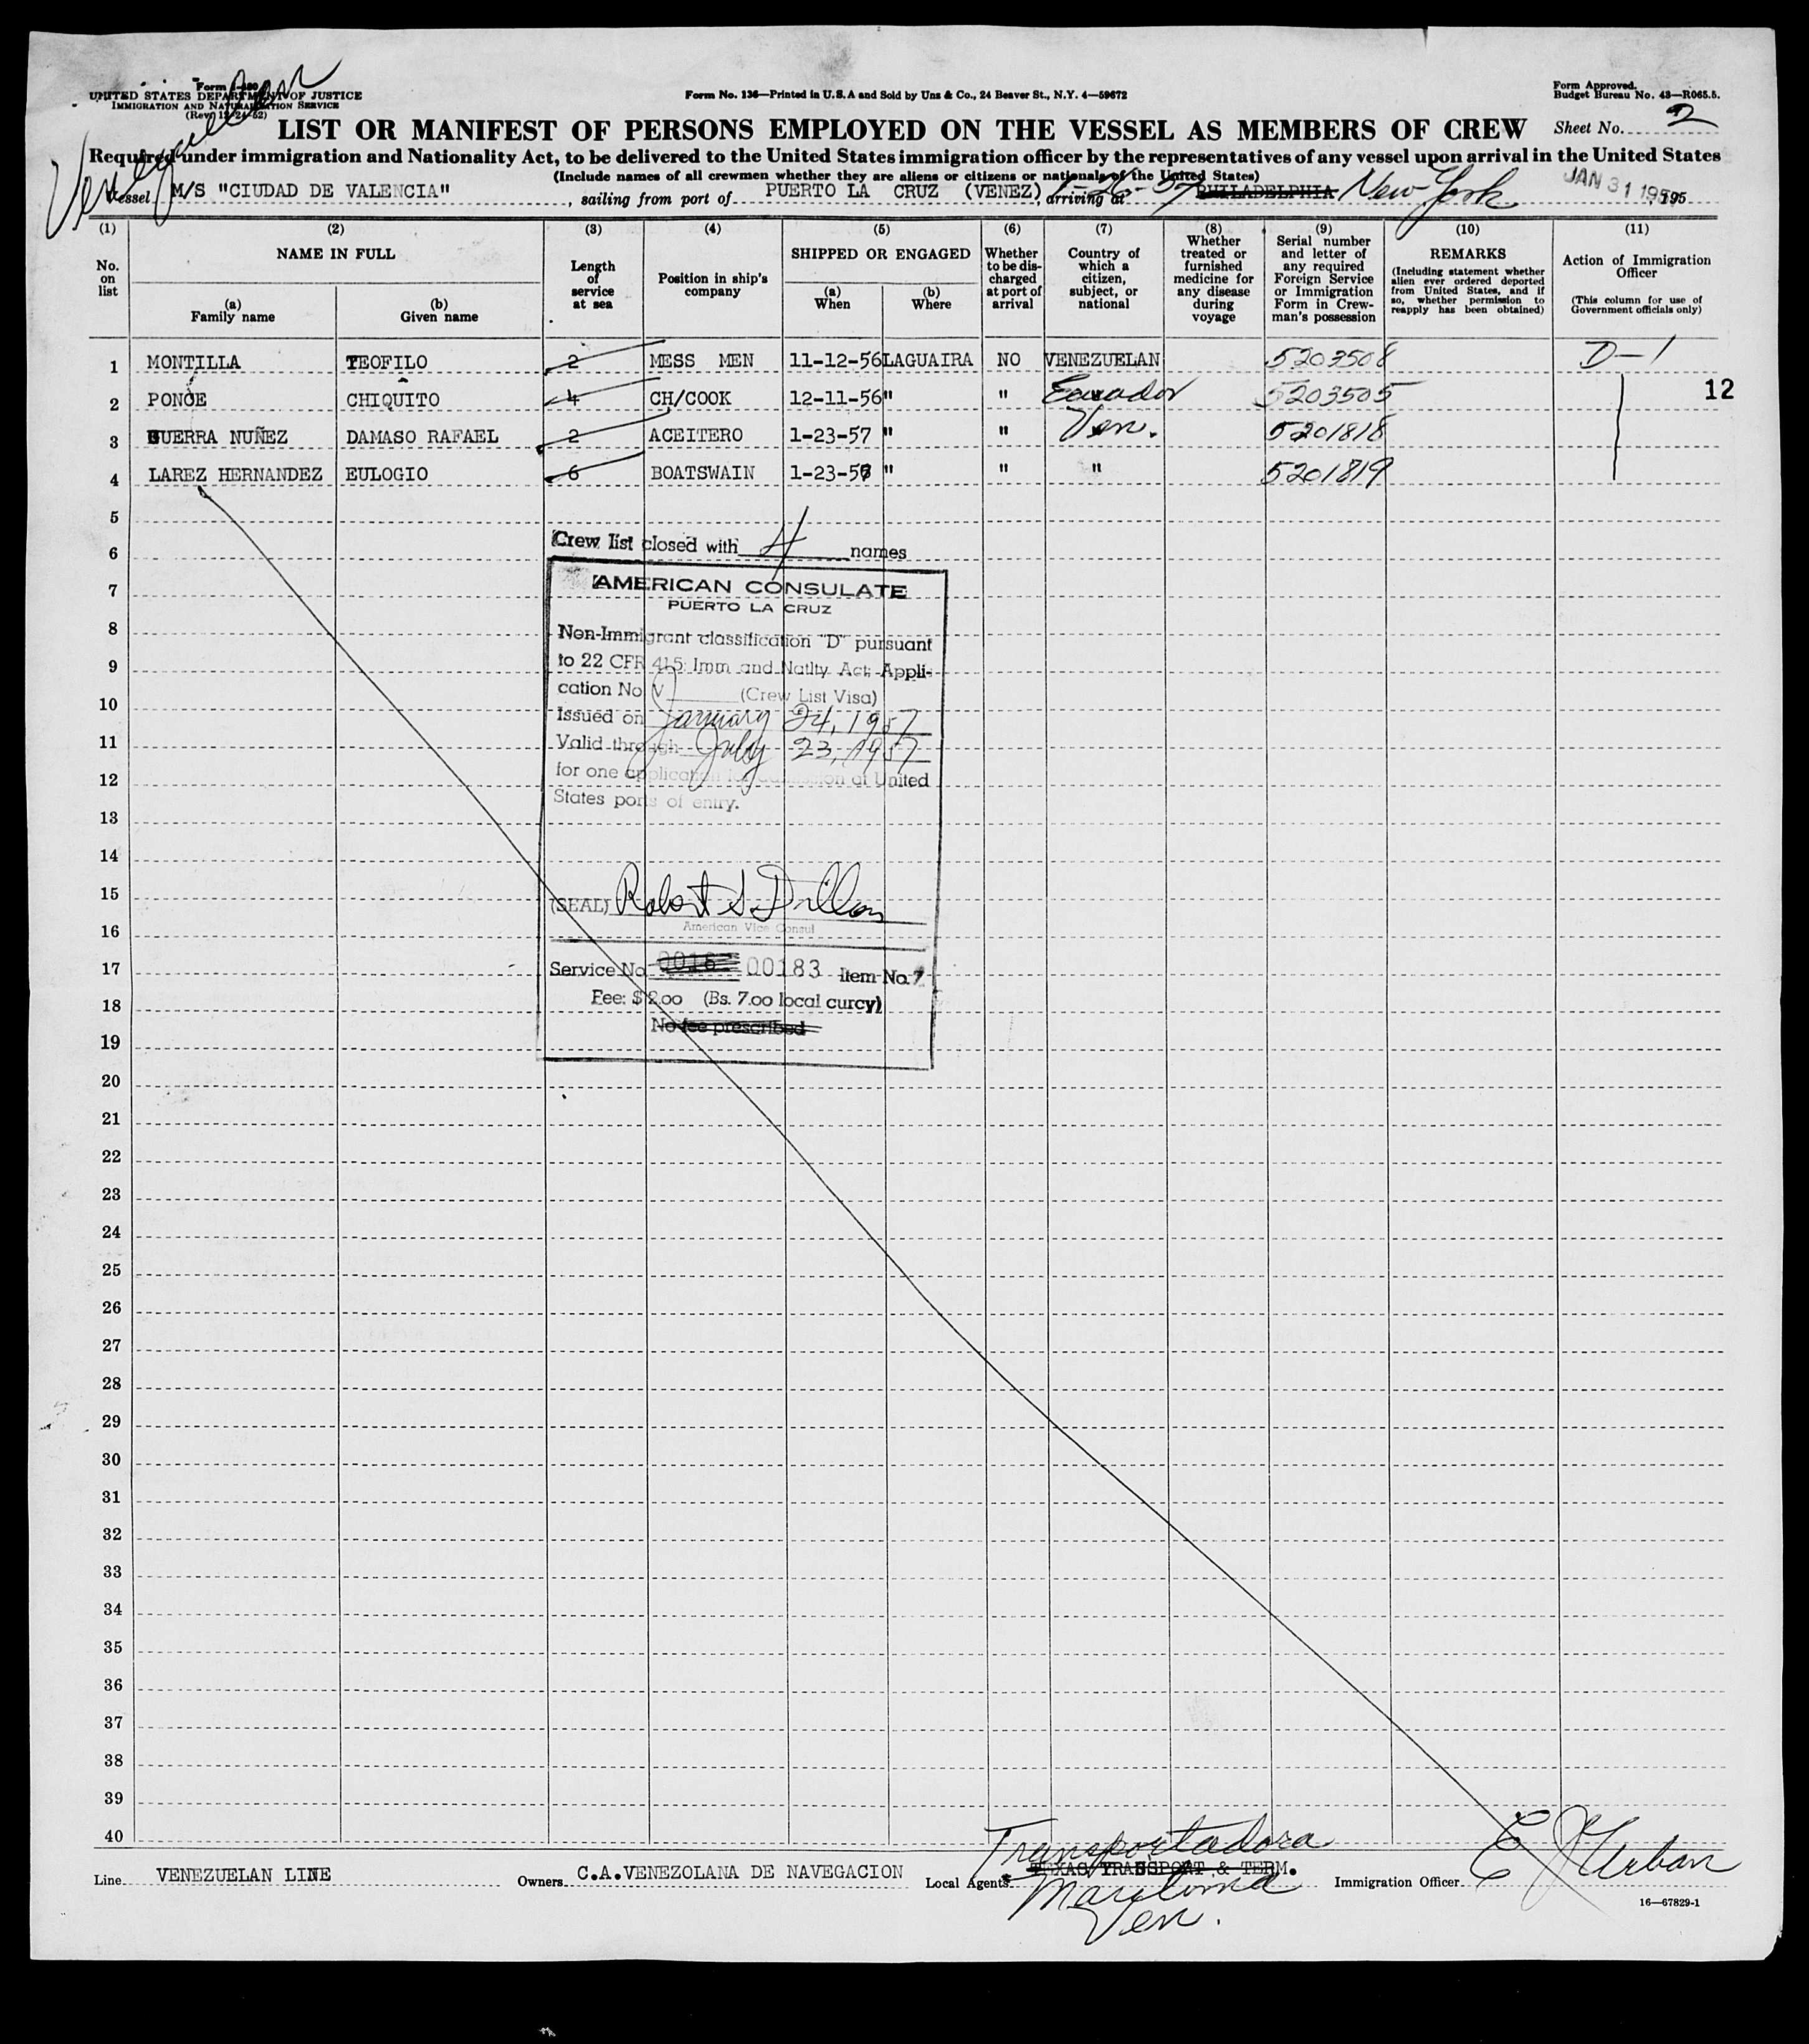 Venezuelan
Form I-480
UNITED STATES DEPARTMENT OF JUSTICE
IMMIGRATION AND NATURALIZATION SERVICE
(Rev. 12-24-52)
Form No. 136—Printed in U.S.A and Sold by Unz & Co., 24 Beaver St., N.Y. 4—59672
Form Approved.
Budget Bureau No. 43—R065.5.
LIST OR MANIFEST OF PERSONS EMPLOYED ON THE VESSEL AS MEMBERS OF CREW
Sheet No. 2
Required under immigration and Nationality Act, to be delivered to the United States immigration officer by the representatives of any vessel upon arrival in the United States
(Include names of all crewmen whether they are aliens or citizens or nationals of the United States)
Vessel M/S "CIUDAD DE VALENCIA", sailing from port of PUERTO LA CRUZ (VENEZ) 1-26-57 arriving at PHILADELPHIA New York JAN 31 1957, 195
(1) (2) (3) (4) (5) (6) (7) (8) (9) (10) (11)
No. on list
NAME IN FULL
(a) Family name
(b) Given name
Length of service at sea
Position in ship's company
SHIPPED OR ENGAGED
(a) When
(b) Where
Whether to be discharged at port of arrival
Country of which a citizen, subject, or national
Whether treated or furnished medicine for any disease during voyage
Serial number and letter of any required Foreign Service or Immigration Form in Crewman's possession
REMARKS
(Including statement whether alien ever ordered deported from United States, and if so, whether permission to reapply has been obtained)
Action of Immigration Officer
(This column for use of Government officials only)
1 MONTILLA TEOFILO 2 MESS MEN 11-12-56 LAGUAIRA NO VENEZUELAN 5203508 D-1
2 PONCE CHIQUITO 4 CH/COOK 12-11-56 " " Ecuador 5203505 12
3 GUERRA NUÑEZ DAMASO RAFAEL 2 ACEITERO 1-23-57 " " Ven. 5201818
4 LAREZ HERNANDEZ EULOGIO 6 BOATSWAIN 1-23-57 " " " 5201819
5
6
Crew list closed with 4 names
7
AMERICAN CONSULATE
PUERTO LA CRUZ
8
Non-Immigrant classification "D" pursuant
9
to 22 CFR 415; Imm and Natlty Act; Appli-
cation No V (Crew List Visa)
10
Issued on January 24, 1957
11
Valid through July 23, 1957
12
for one application for admission at United
States ports of entry.
13
14
15
(SEAL) Robert S. Dillon
American Vice Consul
16
17
Service No. 00183 Item No. 7
18
Fee: $2.00 (Bs. 7.00 local curcy)
No fee prescribed
19
20
21
22
23
24
25
26
27
28
29
30
31
32
33
34
35
36
37
38
39
40
Line VENEZUELAN LINE
Owners C.A.VENEZOLANA DE NAVEGACION
Local Agents TEXAS TRANSPORT & TERM.
Transportadora
Maritima
Ven.
Immigration Officer E J Urban
16—67829-1